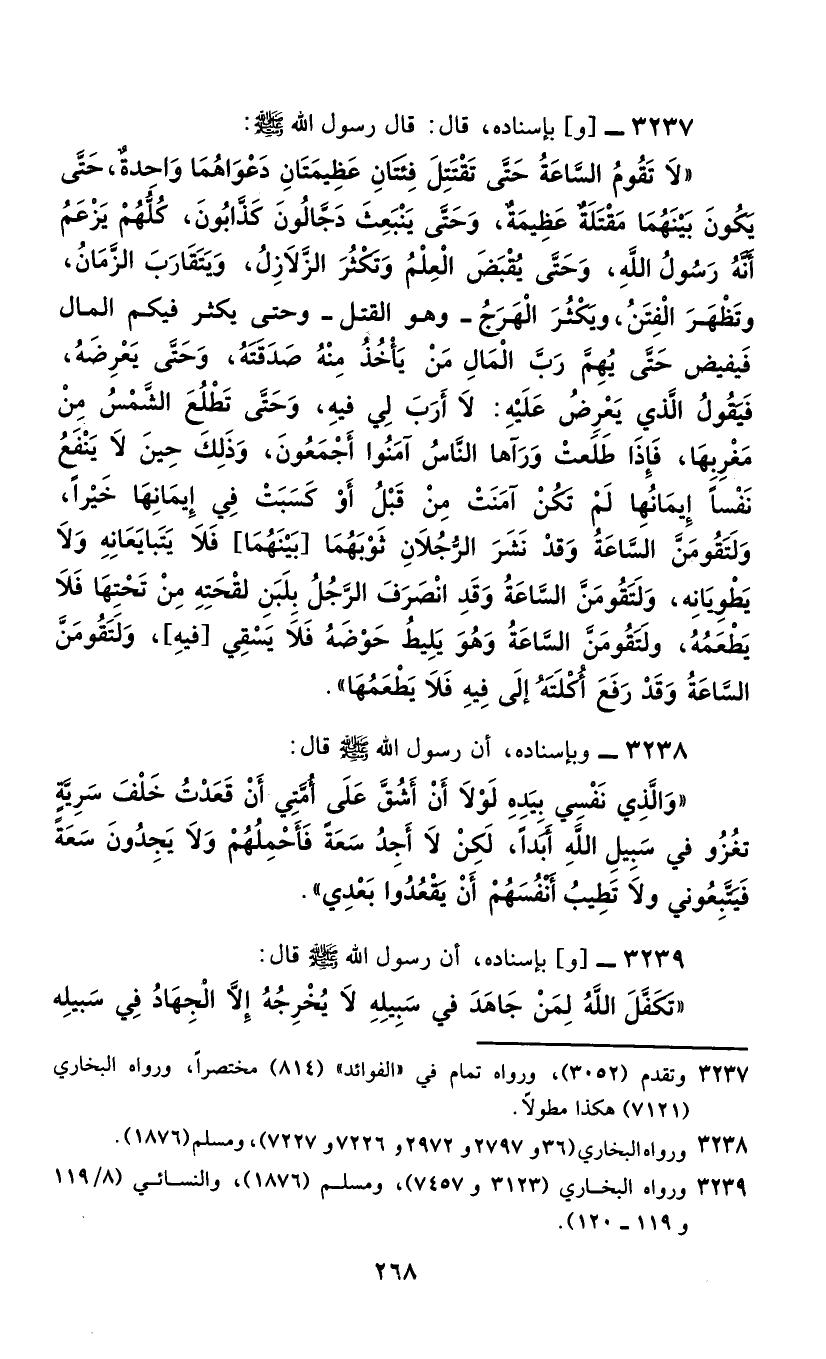 ٣٢٣٧ ــ [و] بإسناده، قال: قال رسول الله ﷺ:
«لَا تَقُومُ السَّاعَةُ حَتَّى تَقْتَتِلَ فِئَتَانِ عَظِيمَتَانِ دَعْوَاهُمَا وَاحِدةٌ، حَتَّى
يَكُونَ بَيْنَهُمَا مَقْتَلَةٌ عَظِيمَةٌ، وَحَتَّى يَنْبَعِثَ دَجَّالُونَ كَذَّابُونَ، كُلُّهُمْ يَزْعَمُ
أَنَّهُ رَسُولُ اللَّهِ، وَحَتَّى يُقْبَضَ الْعِلْمُ وَتَكْثُرَ الزَّلَازِلُ، وَيَتَقَارَبَ الزَّمَانُ،
وتَظْهَرَ الْفِتَنُ، ويَكْثُرَ الْهَرَجُ ـ وهو القتل ـ وحتى يكثر فيكم المال
فَيفيض حَتَّى يُهِمَّ رَبَّ الْمَالِ مَنْ يَأْخُذُ مِنْهُ صَدَقَتَهُ، وَحَتَّى يَعْرِضَهُ،
فَيَقُولُ الَّذي يَعْرِضُ عَلَيْهِ: لَا أَرَبَ لِي فيهِ، وَحَتَّى تَطْلُعَ الشَّمْسُ مِنْ
مَغْرِبِهَا، فَإِذَا طَلَعتْ وَرَآها النَّاسُ آمَنُوا أَجْمَعُونَ، وَذَلِكَ حِينَ لَا يَنْفَعُ
نَفْساً إِيمَانُها لَمْ تَكُنْ آمَنَتْ مِنْ قَبْلُ أَوْ كَسَبَتْ فِي إِيمَانِهَا خَيْراً،
وَلَتَقُومَنَّ السَّاعَةُ وَقَدْ نَشَرَ الرَّجُلَانِ ثَوْبَهُمَا [بَيْنَهُمَا] فَلَا يَتَبايَعَانِهِ وَلَا
يَطْوِيَانِه، وَلَتَقُومَنَّ السَّاعَةُ وَقَدِ انْصَرَفَ الرَّجُلُ بِلَبَنِ لقْحَتِهِ مِنْ تَحْتِهَا فَلَا
يَطْعَمُهُ، ولَتَقُومَنَّ السَّاعَةُ وَهُوَ يَلِيطُ حَوْضَهُ فَلَا يَسْقِي [فيهِ]، وَلَتَقُومَنَّ
السَّاعَةُ وَقَدْ رَفَعَ أُكْلَتَهُ إلَى فِيهِ فَلَا يَطْعَمُهَا».
٣٢٣٨ ــ وبإسناده، أن رسول الله ﷺ قال:
«وَالَّذِي نَفْسِي بِيَدِهِ لَوْلَا أَنْ أَشُقَّ عَلَى أُمَّتِي أَنْ قَعَدْتُ خَلْفَ سَرِيَّةٍ
تغْزُو في سَبِيلِ اللَّهِ أَبَداً، لَكِنْ لَا أَجِدُ سَعَةً فَأَحْمِلُهُمْ وَلَا يَجِدُونَ سَعَةً
فَيَتَّبِعُوني ولَا تَطِيبُ أَنْفُسَهُمْ أَنْ يَقْعُدُوا بَعْدِي».
٣٢٣٩ ــ [و] بإسناده، أن رسول الله ﷺ قال:
«تَكَفَّلَ اللَّهُ لِمَنْ جَاهَدَ في سَبِيلِهِ لَا يُخْرِجُهُ إِلَّا الْجِهَادُ فِي سَبيلِه
٣٢٣٧ وتقدم (٣٠٥٢)، ورواه تمام في «الفوائد» (٨١٤) مختصراً، ورواه البخاري
(٧١٢١) هكذا مطولاً.
٣٢٣٨ ورواه البخاري (٣٦و ٢٧٩٧و ٢٩٧٢و ٧٢٢٦و ٧٢٢٧)، ومسلم (١٨٧٦).
٣٢٣٩ ورواه البخاري (٣١٢٣ و ٧٤٥٧)، ومسلم (١٨٧٦)، والنسائي (٨/ ١١٩
و ١١٩ ـ ١٢٠).
٢٦٨